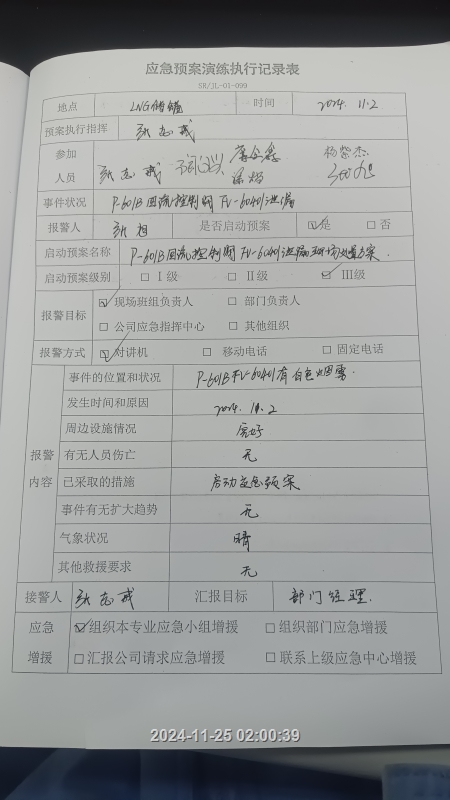 应急预案演练执行记录表
SK/JL-01-099
地点 LNG储罐 时间 2024.11.2
预案执行指挥 张志戎
参加 张志戎 杨紫杰
人员
事件状况 P-601B回流控制阀 FV-60401泄漏
报警人 张 是否启动预案 ☑是 □否
启动预案名称 P-601B回流控制阀 FV-60401泄漏现场处置方案.
启动预案级别 □Ⅰ级 □Ⅱ级 ☑Ⅲ级
报警目标 ☑现场班组负责人 □部门负责人
□公司应急指挥中心 □其他组织
报警方式 ☑对讲机 □移动电话 □固定电话
报警
内容
事件的位置和状况 P-601B FV-60401有白色烟雾.
发生时间和原因 2024.11.2
周边设施情况 完好
有无人员伤亡 无
已采取的措施 启动应急预案
事件有无扩大趋势 无
气象状况 晴
其他救援要求 无
接警人 张志戎 汇报目标 部门经理.
应急 ☑组织本专业应急小组增援 □组织部门应急增援
增援 □汇报公司请求应急增援 □联系上级应急中心增援
2024-11-25 02:00:39